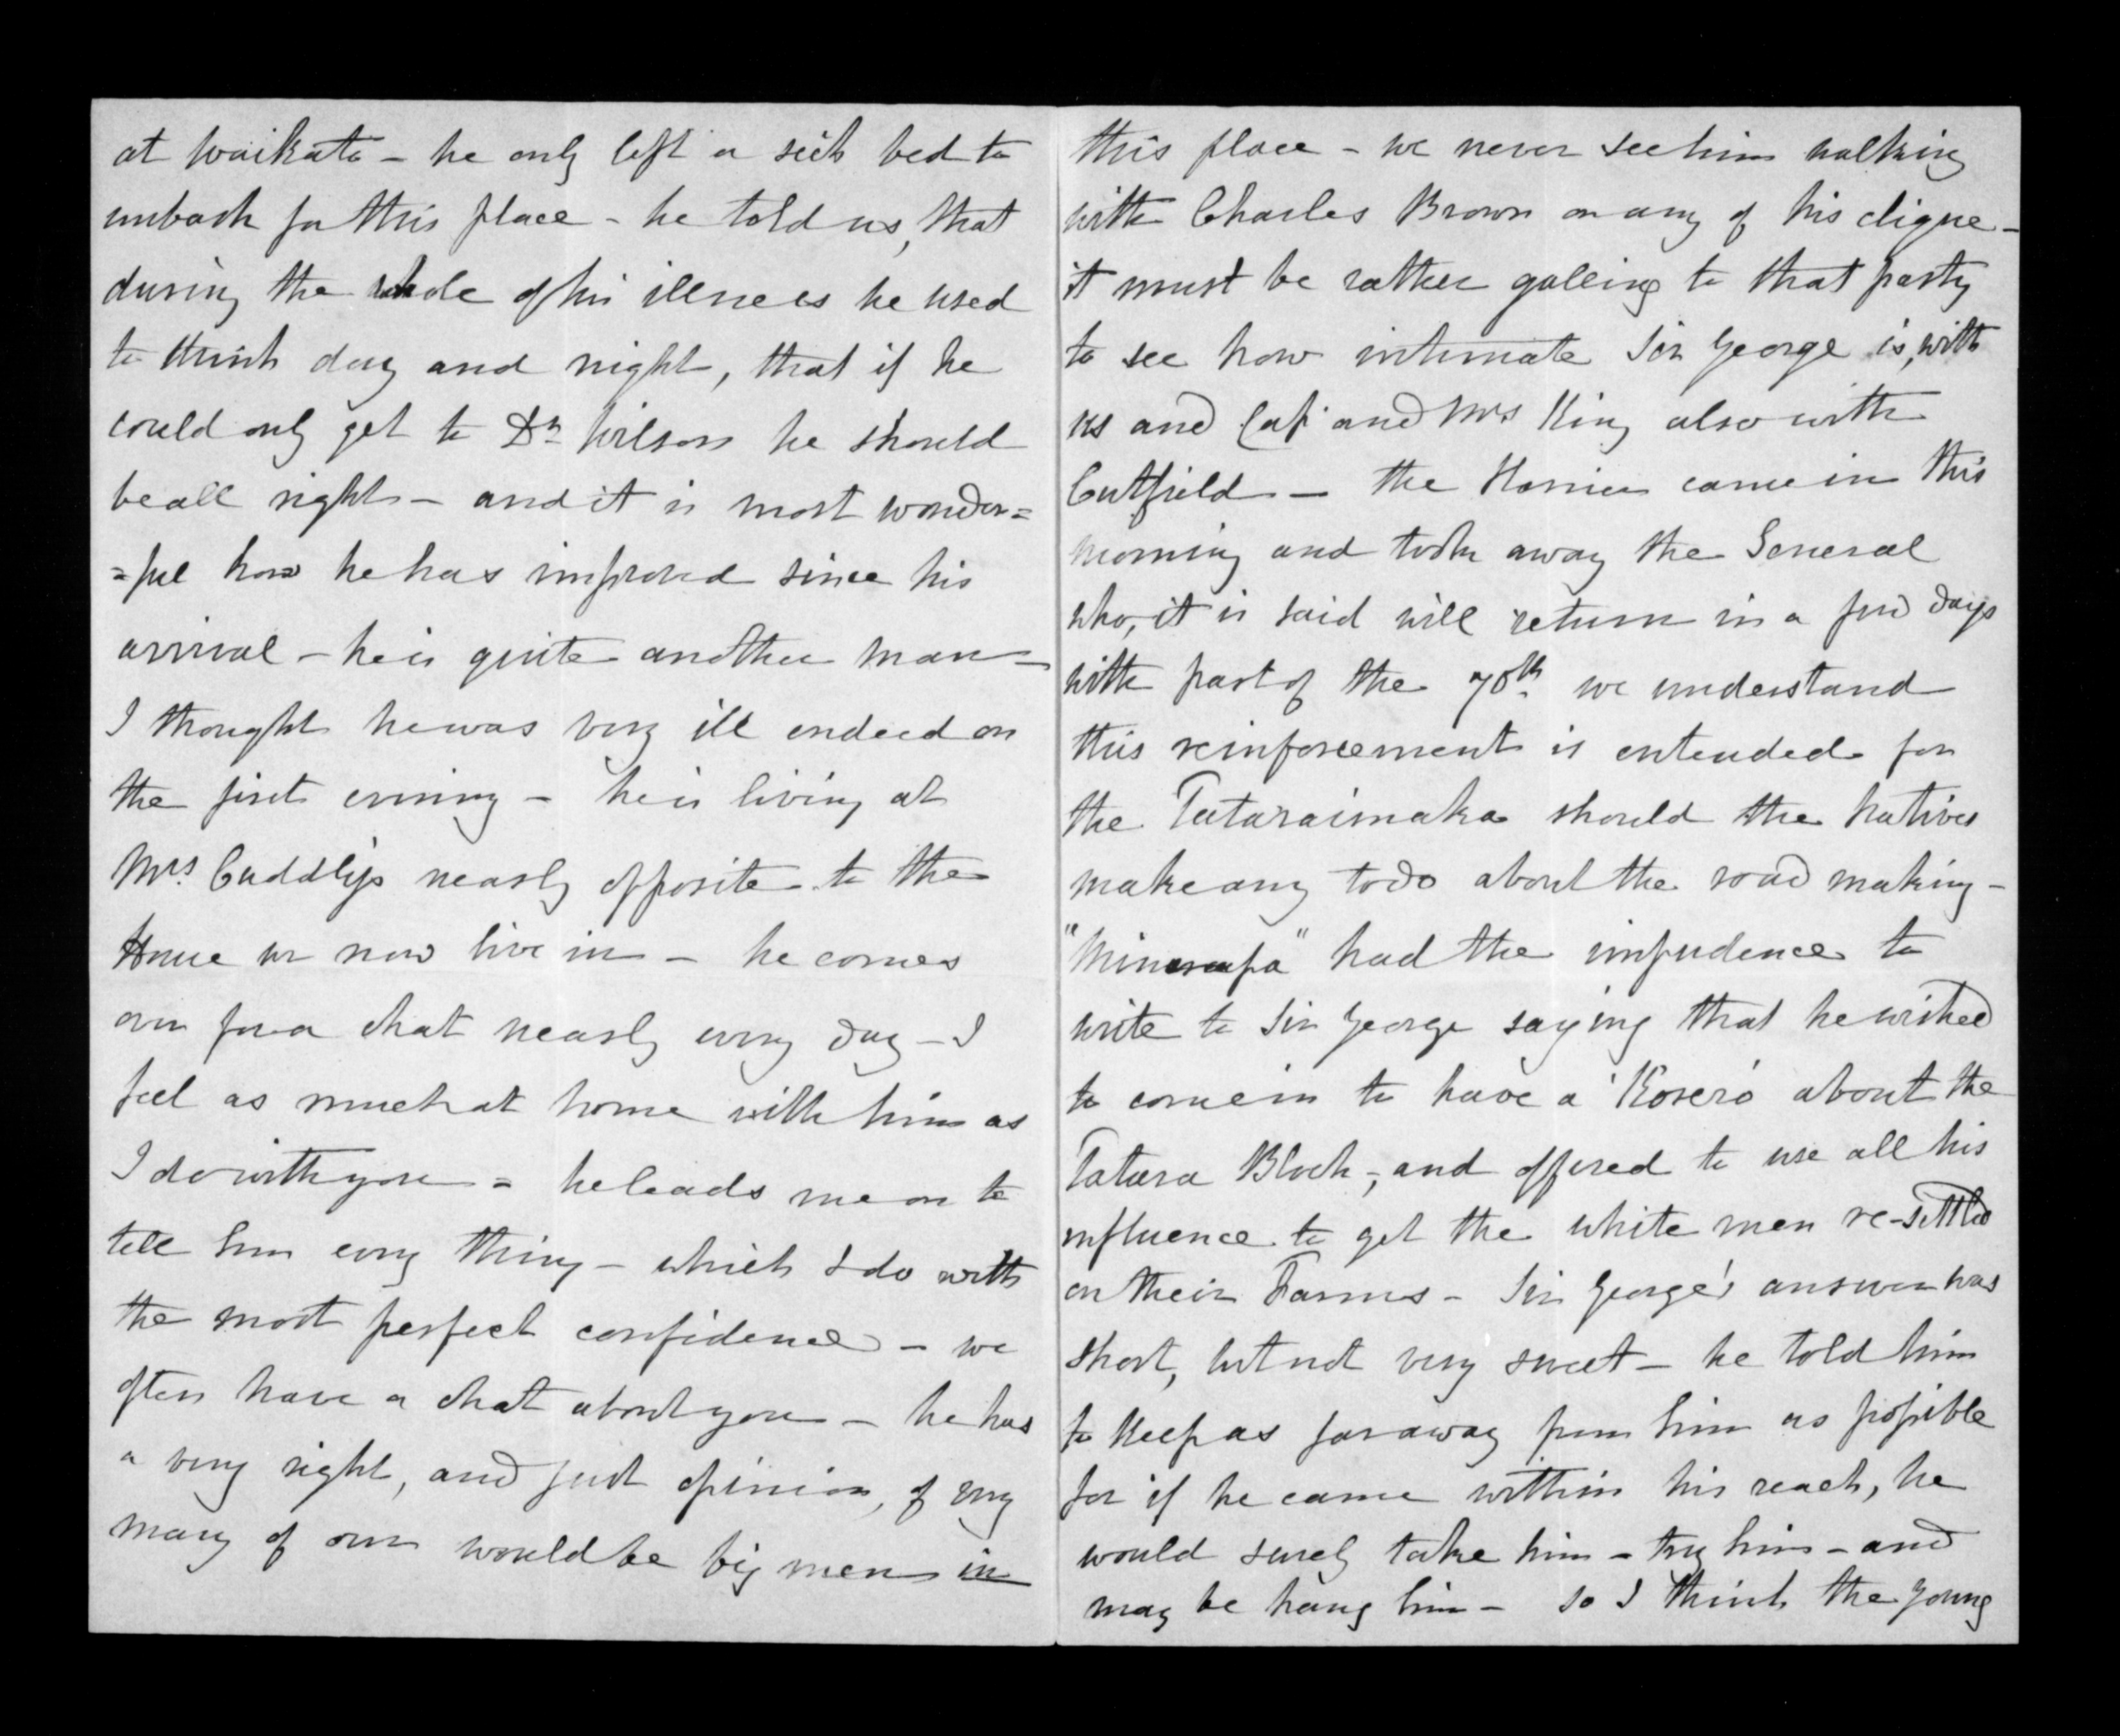 at Waikato - he only left a sick bed to
embark for this place - he told us, that
during the whole of his illness he used
to think day and night, that if he
could only get to Dr Wilson he should
be all right - and it is most wonder=
=ful how he has improved since his
arrival - he is quite another man -
I thought he was very ill endeed on
the first evening - he is living at
Mrs. Cuddlips nearly opposite to the
House we now live in - he comes
over for a chat nearly every day - I
feel as much at home with him as
I do with you - he leads me on to
tell him every thing - which I do with
the most perfect confidence - we
often have a chat about you - he has
a very right, and just opinion, of very
many of our would be big men in
this place - we never see him walking
with Charles Brown or any of his clique -
it must be rather galling to that party
to see how intimate Sir George is, with
us and Cap and Mrs King also with
Cutfield - the Harrier came in this
morning and took away the General
who, it is said will return in a few days
with part of the 70th. we understand
this reinforcement is entended for
the Tataraimaka should the Natives
make any todo about the road making -
had the impudence to
write to Sir George saying that he wished
to come in to have a 'Korero' about the
Tatara Block, and offered to use all his
influence to get the white men re-settled
on their Farms - Sir George's answer was
short, but not very sweet - he told him
to keep as far away from him as possible
for if he came within his reach, he
would surely take him - try him - and
may be hang him - so I think the young